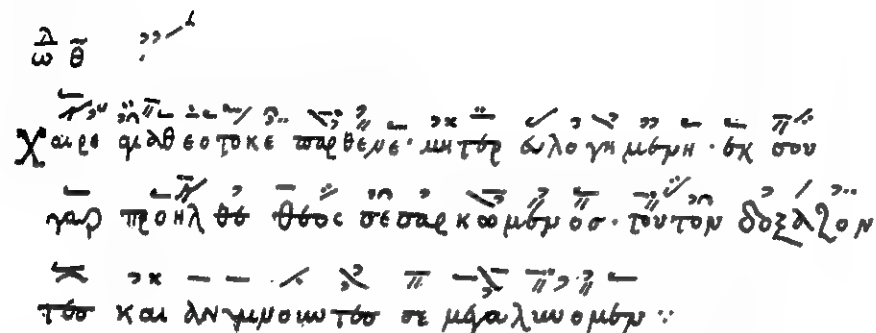 Χαιρε αγια θεοτοκε παρθενε· μητερ ευλογημενη· εκ σου
γαρ προηλθε θεος σεσαρκωμενος· τουτον δοξαζον
τες και ανυμνουντες σε μεγαλυνομεν